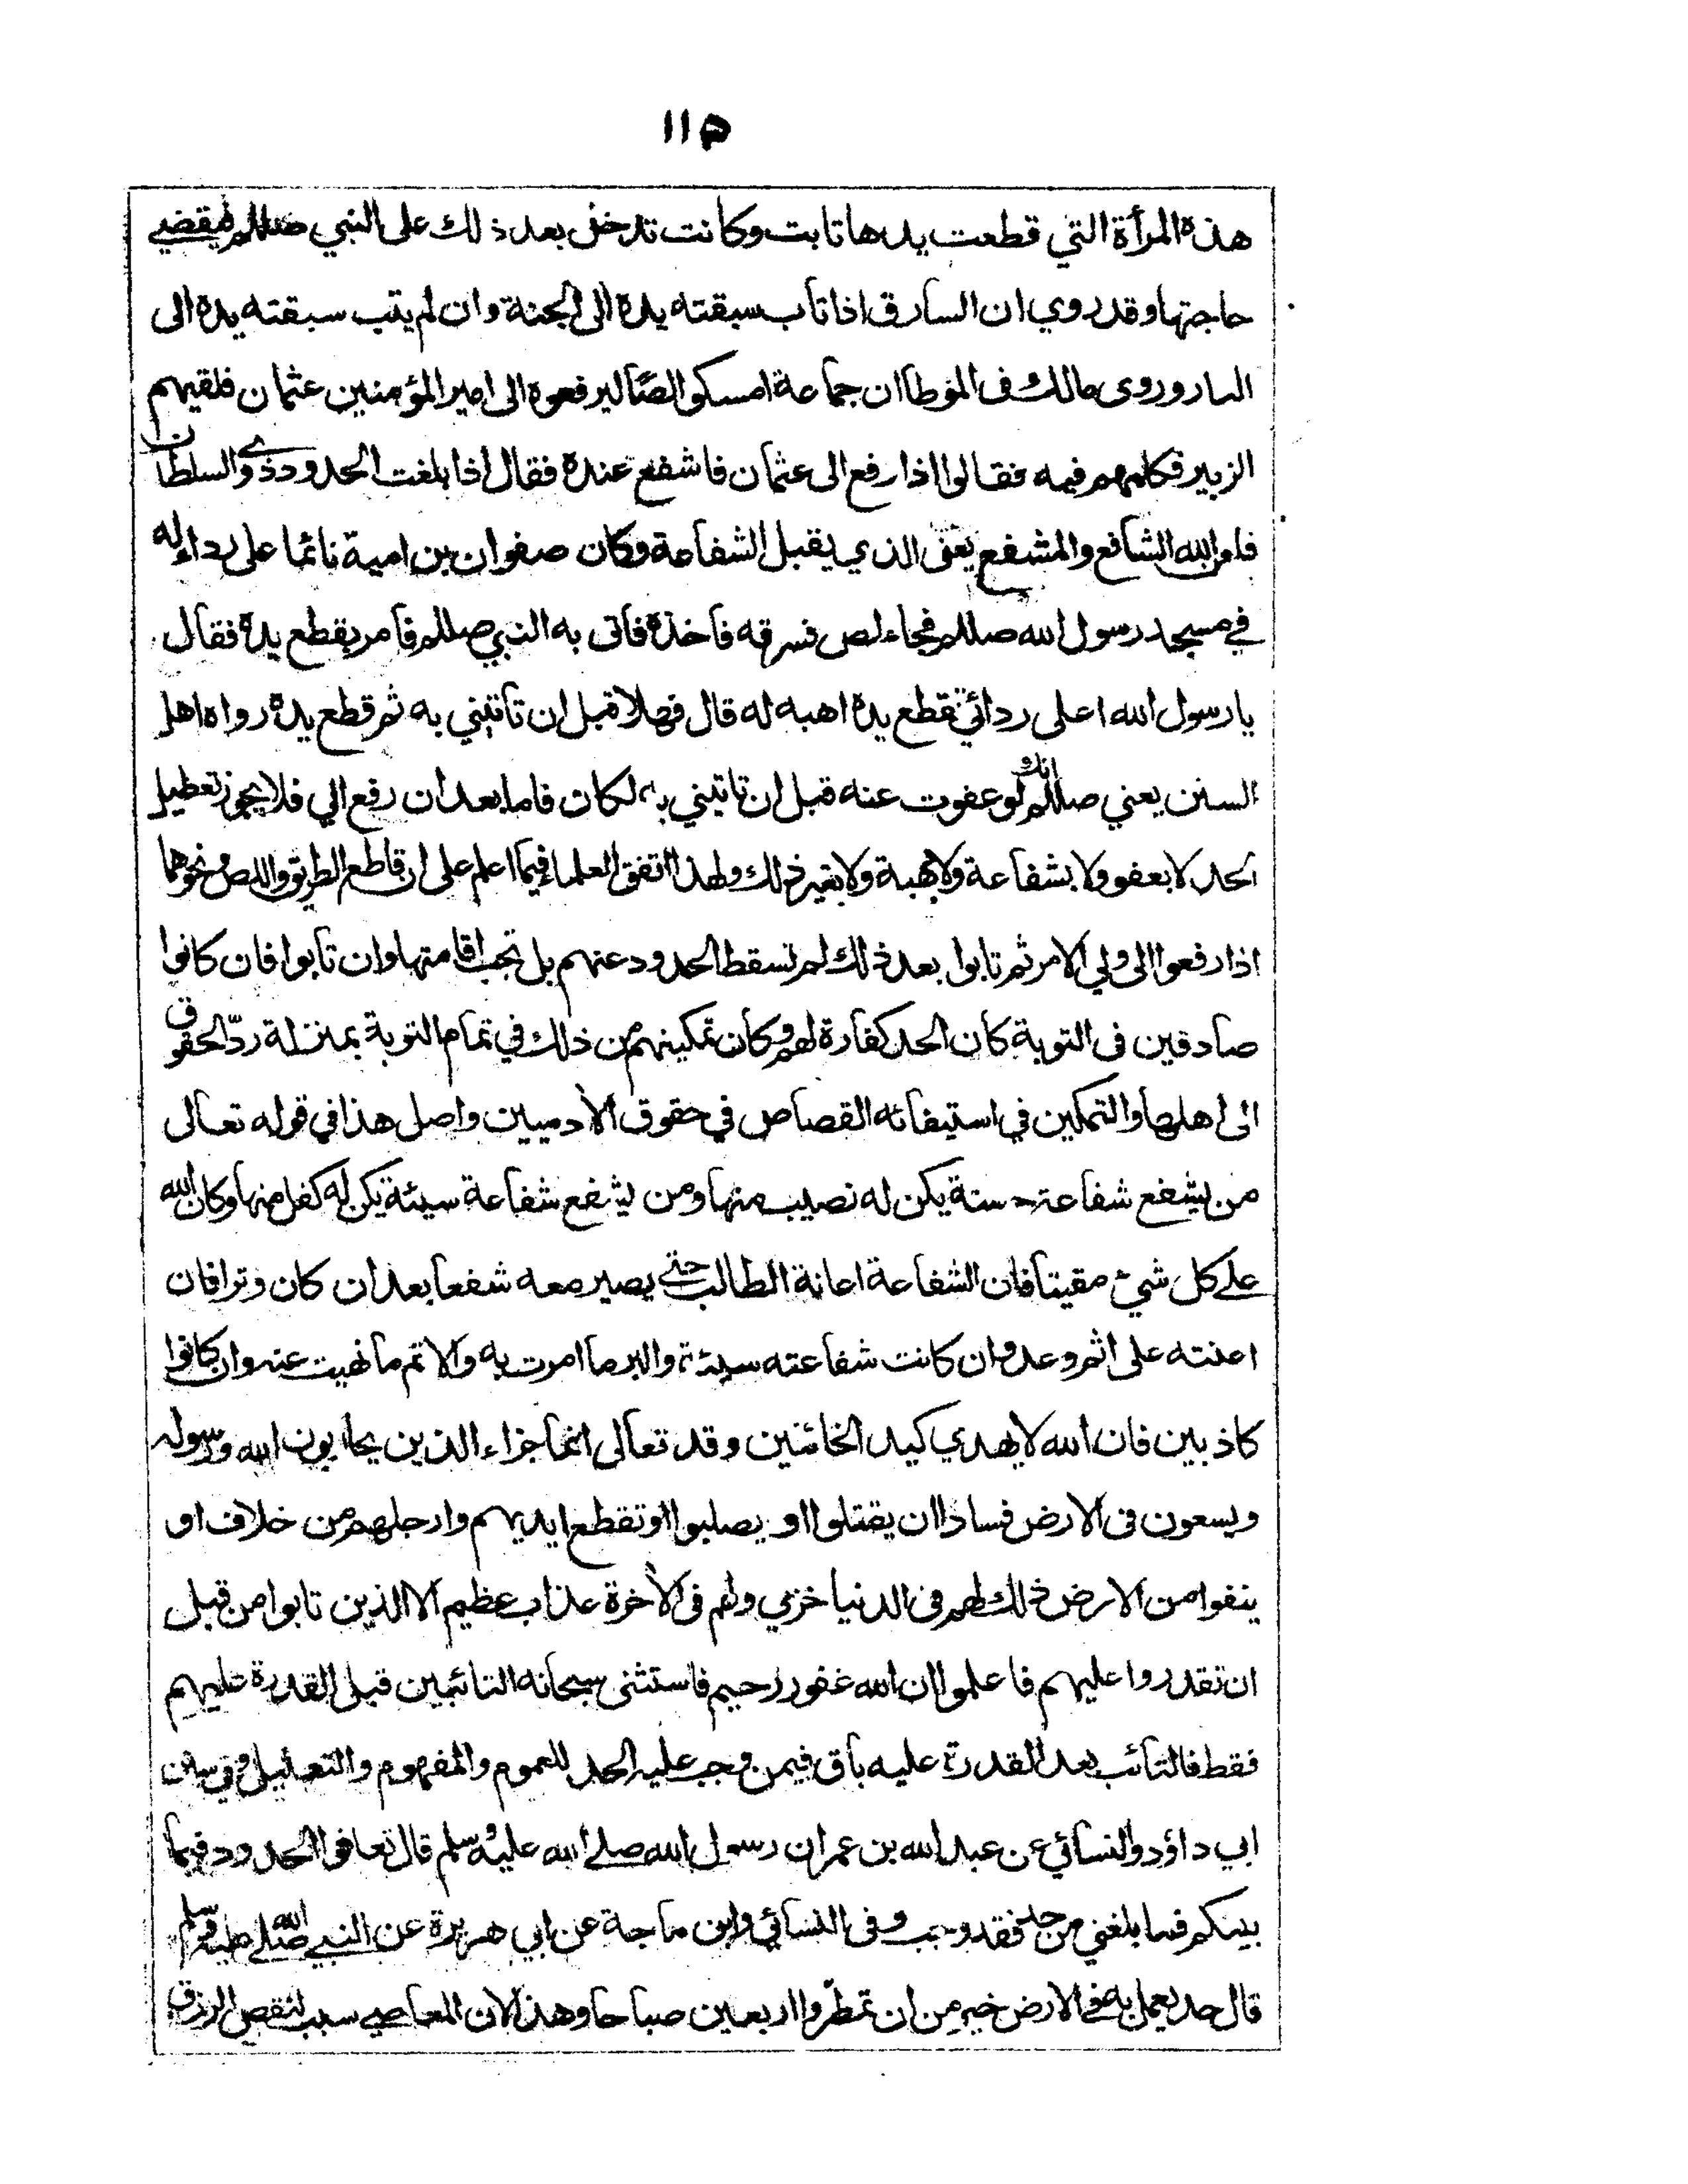 ١١٥
هذه المرأة التي قطعت يدها تابت وكانت تدخل بعد ذلك على النبي صللم فيقضي
حاجتها وقد روي ان السارق اذا تاب سبقته يده الى الجنة وان لم يتب سبقته يده الى
النار وروى مالك في الموطا ان جماعة امسكوا لصا ليرفعوه الى امير المؤمنين عثمان فلقيهم
الزبير فكلمهم فيه فقالوا اذا رفع الى عثمان فاشفع عنده فقال اذا بلغت الحدود ذوى السلطان
فلعن الله الشافع والمشفع يعنى الذي يقبل الشفاعة وكان صفوان بن امية نائما على رداء له
في مسجد رسول الله صللم فجاء لص فسرقه فاخذه فاتى به النبي صللم فامر بقطع يده فقال
يا رسول الله اعلى ردائي تقطع يده اهبه له قال فهلا قبل ان تأتيني به ثم قطع يده رواه اهل
السنن يعني صللم انك لو عفوت عنه قبل ان تاتيني به لكان فاما بعد ان رفع الي فلا يجوز تعطيل
الحد لا بعفو ولا بشفاعة ولا بهبة ولا بغير ذلك ولهذا اتفق العلماء فيما اعلم على ان قاطع الطريق واللص ونحوهما
اذا رفعوا الى ولي الامر ثم تابوا بعد ذلك لم تسقط الحدود عنهم بل تجب اقامتها وان تابوا فان كانوا
صادقين فى التوبة كان الحد كفارة لهم وكان تمكينهم من ذلك في تمام التوبة بمنزلة ردّ الحقوق
الى اهلها والتمكين في استيفائه القصاص في حقوق الآدميين واصل هذا في قوله تعالى
من يشفع شفاعة حسنة يكن له نصيب منها ومن يشفع شفاعة سيئة يكن له كفل منها وكان الله
على كل شيئ مقيتا فان الشفاعة اعانة الطالب حتى يصير معه شفعا بعد ان كان وترا فان
اعنته على اثم وعدوان كانت شفاعته سيئة والبر ما امرت به والاثم ما نهيت عنه وان كانوا
كاذبين فان الله لا يهدي كيد الخائنين وقد تعالى انما جزاء الذين يحاربون الله ورسوله
ويسعون فى الارض فسادا ان يقتلوا او يصلبوا او تقطع ايديهم وارجلهم من خلاف او
ينفوا من الارض ذلك لهم فى الدنيا خزي ولهم فى الآخرة عذاب عظيم الا الذين تابوا من قبل
ان تقدروا عليهم فاعلموا ان الله غفور رحيم فاستثنى سبحانه التائبين قبل القدرة عليهم
فقط فالتائب بعد القدرة عليه باق فيمن وجب عليه الحد للعموم والمفهوم والتعليل وفي سنن
ابي داؤد والنسائي عن عبد الله بن عمر ان رسول الله صلى الله عليه وسلم قال تعافوا الحدود فيما
بينكم فما بلغني من حد فقد وجب وفى النسائي وابن ماجة عن ابي هريرة عن النبي صلى الله عليه وسلم
قال حد يعمل به فى الارض خير من ان تمطروا اربعين صباحا وهذا لان المعاصي سبب لنقص الرزق